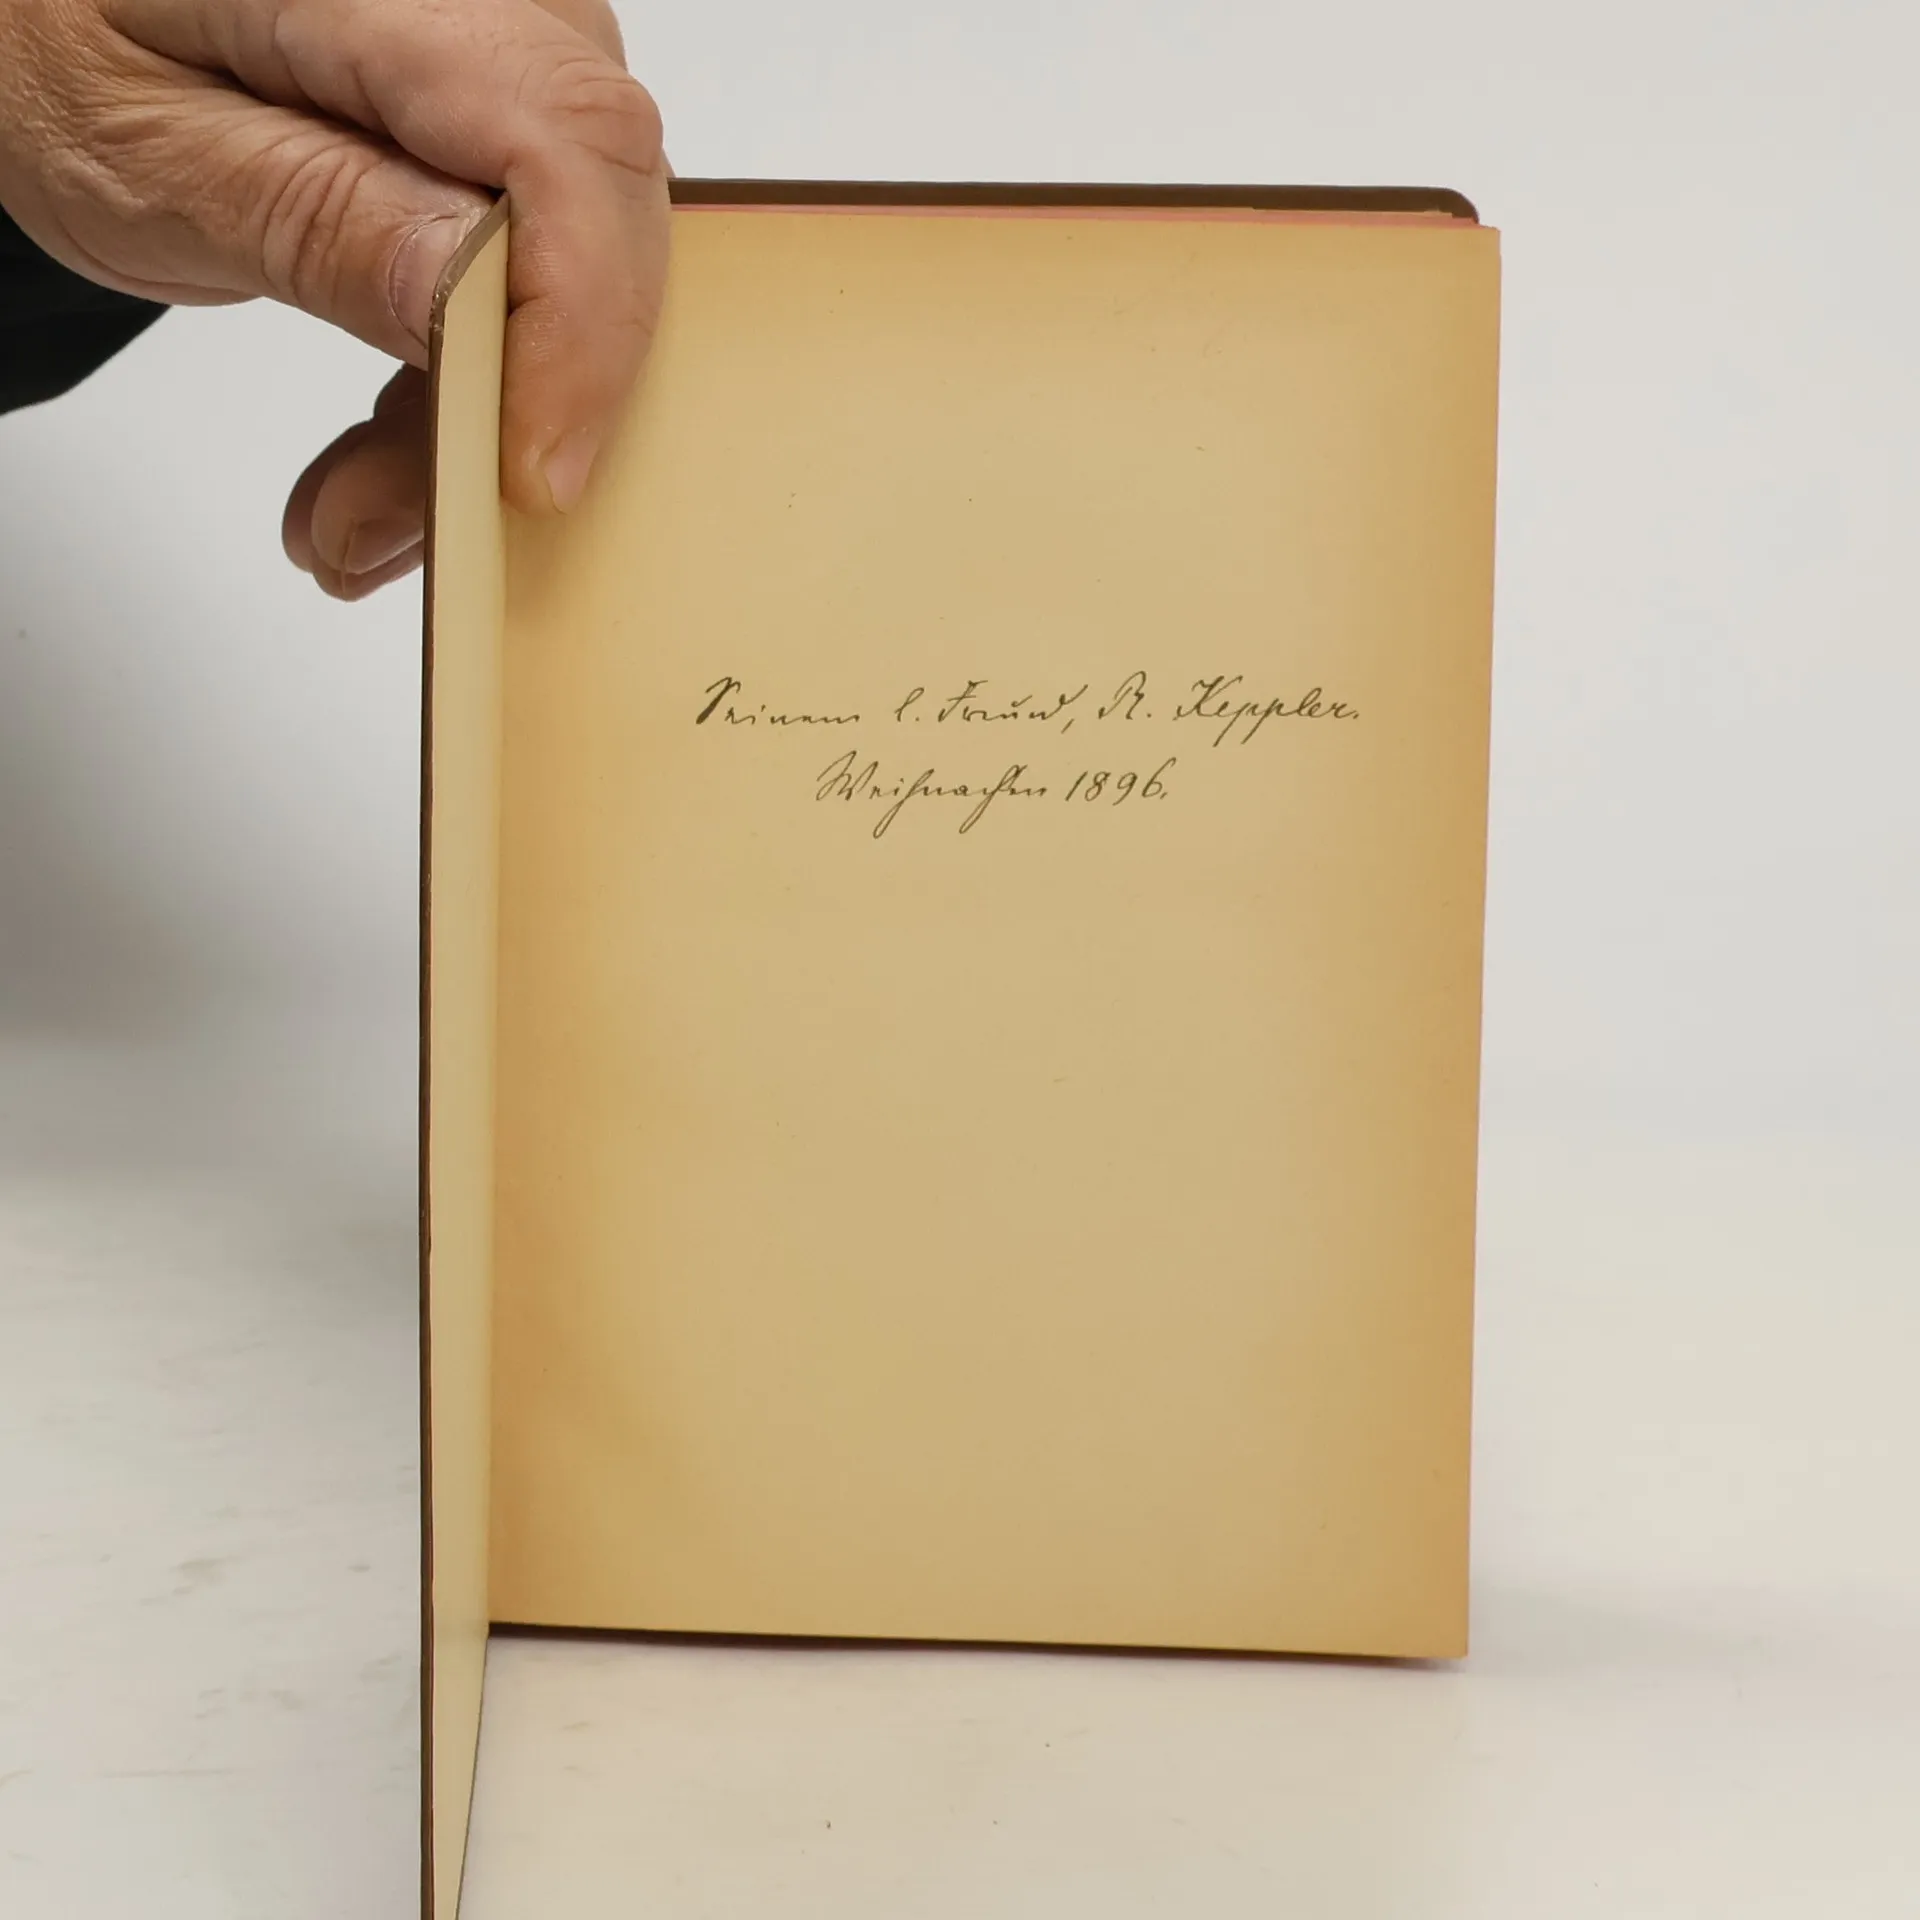 Seinem l. Freund, R. Keppler.
Weihnachten 1896.